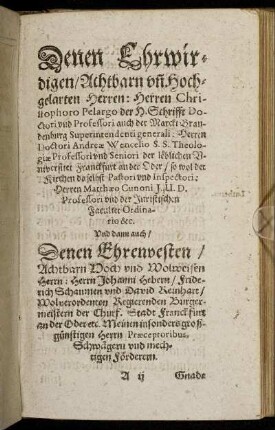 Denen Ehrwir-
digen/Achtbarn vñ Hoch-
gelarten Herren: Herren Chri-
stophoro Pelargo der H. Schrifft Do-
ctori vnd Professori auch der Marck Bran-
denburg Superintendenti generali: Herren
Doctori Andreæ Wencelio S. S. Theolo-
giæ Professori vnd Seniori der löblichen V-
niversitet Franckfurt an der Oder/ so wol der
Kirchen daselbst Pastori vnd Inspectori:
Herren Matthæo Cunoni J. U. D.
Professori vnd der Juristischen
Facultet Ordina-
rio &c.
Vnd dann auch/
Denen Ehrenvesten/
Achtbarn Hoch vnd Wolweisen
Herrn: Herrn Johanni Hebern/ Fride-
rich Schaumen vnd David Reinhart/
Wolverordenten Regierenden Bürger-
meistern der Churf. Stadt Franckfurt
an der Oder etc. Meinen insonders groß-
günstigen Herrn Præceptoribus,
Schwägern vnd mech-
tigen Förderern.
A ij
Gnade